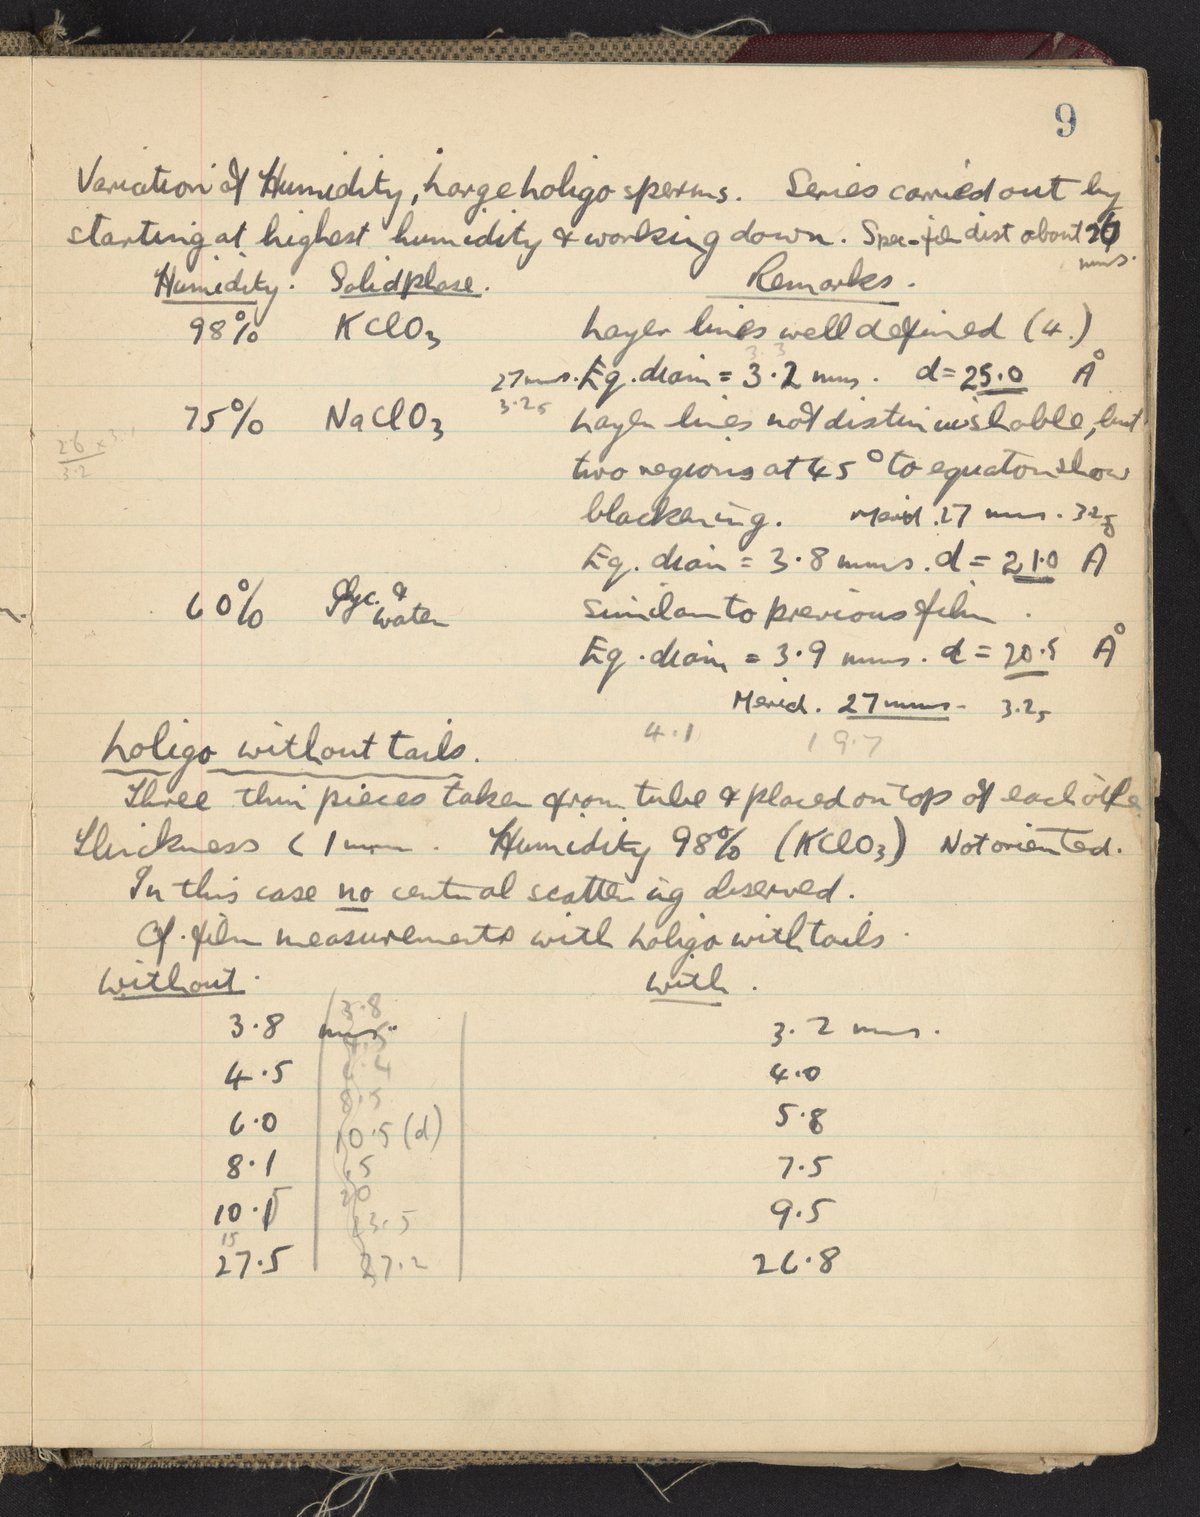 9
Variation of Humidity, Large Loligo sperms. Series carried out by
starting at highest humidity & working down. Spec-film dist about 26
mms.
Humidity. Solid phase. Remarks.
98% KClO3 Layer lines well defined (4.)
3.3
27 mms. Eq. diam = 3.2 mms. d = 25.0 Å
3.25
75% NaClO3 Layer lines not distinguishable, but
26 x 3.1
3.2
two regions at 45° to equator show
blackening. Merid. 27 mms. 3.25
Eq. diam = 3.8 mms. d = 21.0 Å
60% Glyc. & water similar to previous film.
Eq. diam = 3.9 mms. d = 20.5 Å
Merid. 27 mms. 3.25
4.1 19.7
Loligo without tails.
Three thin pieces taken from tube & placed on top of each other
Thickness < 1 mm. Humidity 98% (KClO3) Not oriented.
In this case no central scattering observed.
Cf. film measurements with Loligo with tails.
Without. With.
3.8 mms. 3.8 3.2 mms.
4.5 4.4 4.0
8.5
6.0 10.5 (d) 5.8
8.1 7.5
20
10.5 23.5 9.5
15
27.5 27.2 26.8